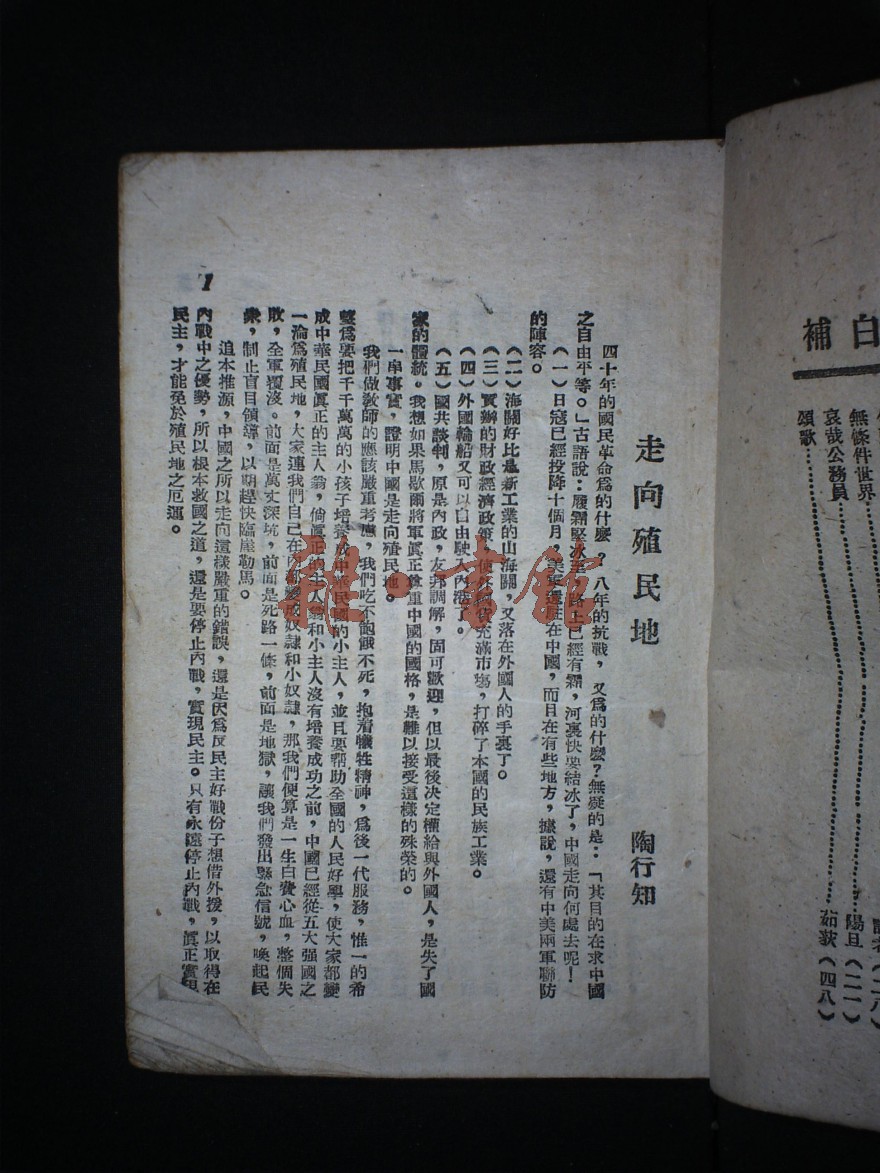 補白
無條件世界…………陽旦（二一）
哀哉公務員
頌歌…………茹荻（四八）
走向殖民地
陶行知
四十年的國民革命爲的什麼？八年的抗戰，又爲的什麼？無疑的是：「其目的在求中國
之自由平等。」古語說：履霜堅冰至，路上已經有霜，河裏快要結冰了，中國走向何處去呢！
（一）日寇已經投降十個月，美軍還駐在中國，而且在有些地方，據說，還有中美兩軍聯防
的陣容。
（二）海關好比是新工業的山海關，又落在外國人的手裏了。
（三）買辦的財政經濟政策，使外國貨充滿市場，打碎了本國的民族工業。
（四）外國輪船又可以自由駛入內港了。
（五）國共談判，原是內政，友邦調解，固可歡迎，但以最後決定權給與外國人，是失了國
家的體統。我想如果馬歇爾將軍眞正尊重中國的國格，是難以接受這樣的殊榮的。
一串事實，證明中國是走向殖民地。
我們做敎師的應該嚴重考慮，我們吃不飽餓不死，抱着犧牲精神，爲後一代服務，惟一的希
望爲要把千千萬萬的小孩子培養成中華民國的小主人，並且要幫助全國的人民好學，使大家都變
成中華民國眞正的主人翁，倘眞正的主人翁和小主人沒有培養成功之前，中國已經從五大强國之
一淪爲殖民地，大家連我們自己在內都變成奴隷和小奴隷，那我們便算是一生白費心血，整個失
敗，全軍覆沒。前面是萬丈深坑，前面是死路一條，前面是地獄，讓我們發出緊急信號，喚起民
衆，制止盲目領導，以期趕快臨崖勒馬。
追本推源，中國之所以走向這樣嚴重的錯誤，還是因爲反民主好戰份子想借外援，以取得在
內戰中之優勢，所以根本救國之道，還是要停止內戰，實現民主。只有永遠停止內戰，眞正實現
民主，才能免於殖民地之厄運。
1